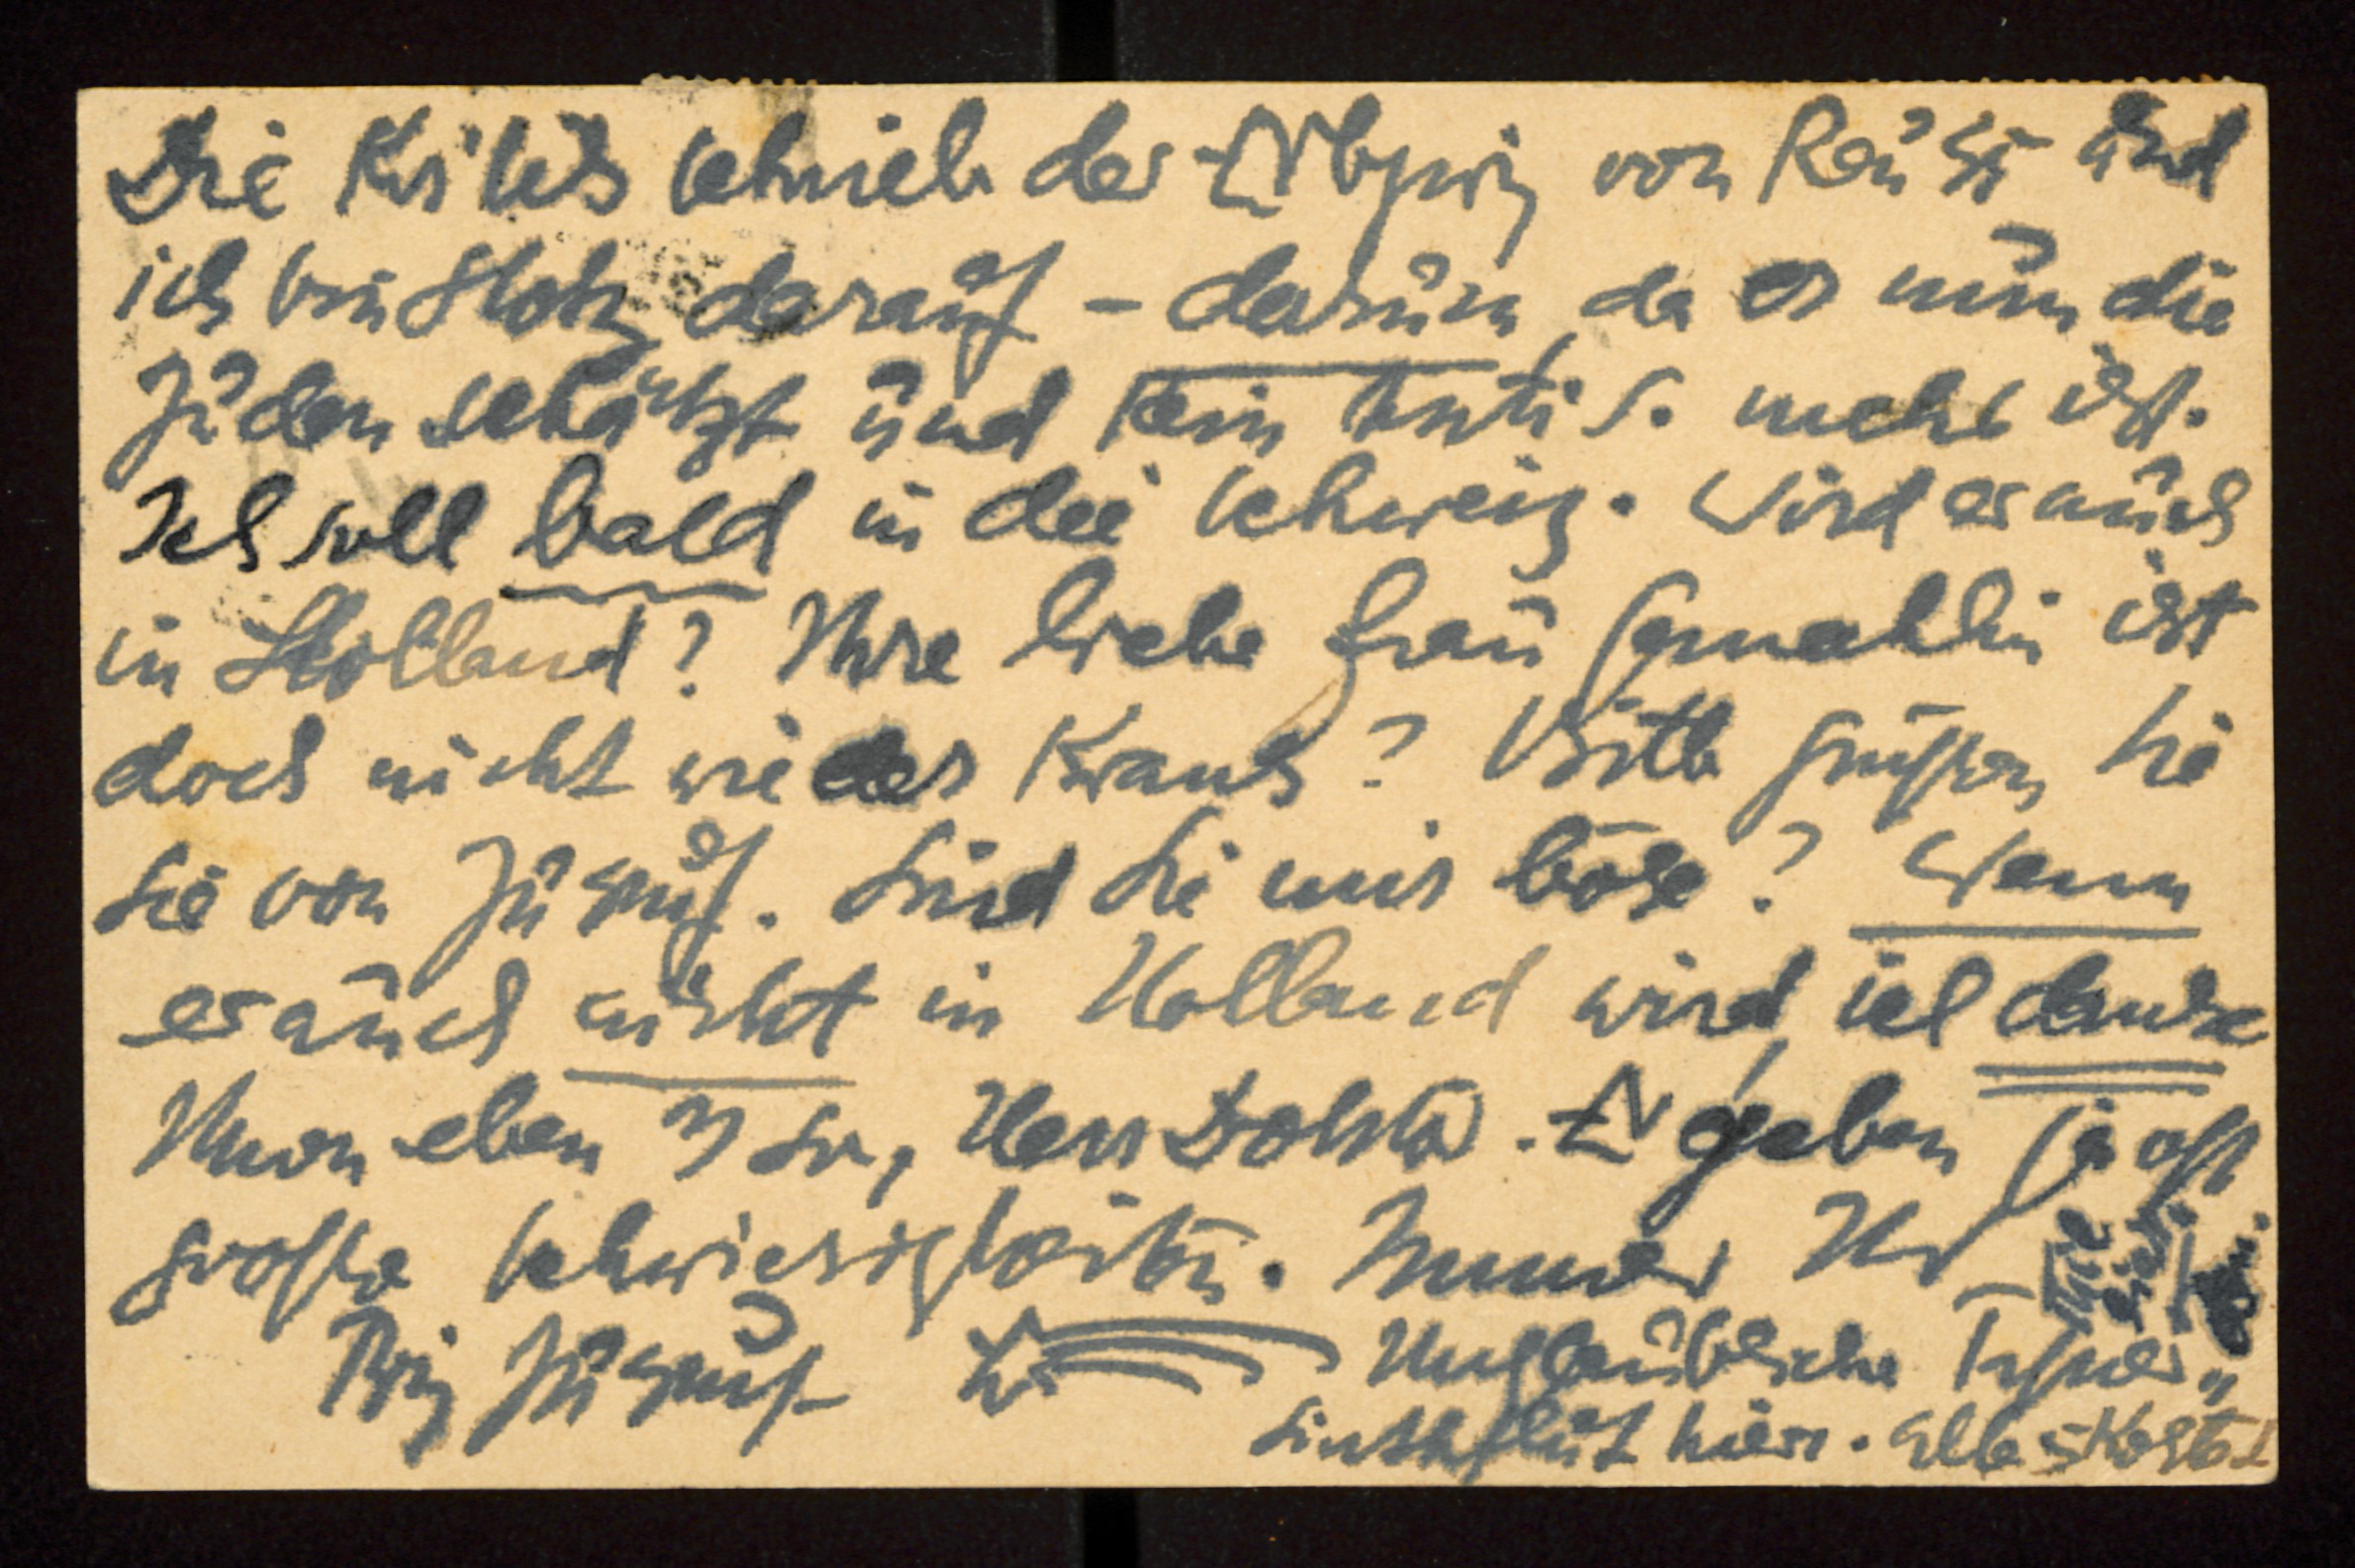 Die Kritik schrieb der Erbprinz von Reuß und
ich bin stolz darauf – darum, da er nun die
Juden schätzt und kein Antis. mehr ist.
Ich soll bald in die Schweiz. Wird es auch
in Holland? Ihre liebe Frau Gemahlin ist
doch nicht wieder krank? Bitte grüßen Sie
sie von Jussuf. Sind Sie mir böse? Wenn
es auch nicht in Holland wird, ich danke
Ihnen eben so, Herr Doktor. Es geben ja oft
große Schwierigkeiten. Immer Ihr
Prinz Jussuf Unglaubliche
Sinthflut hier. Alles kostet